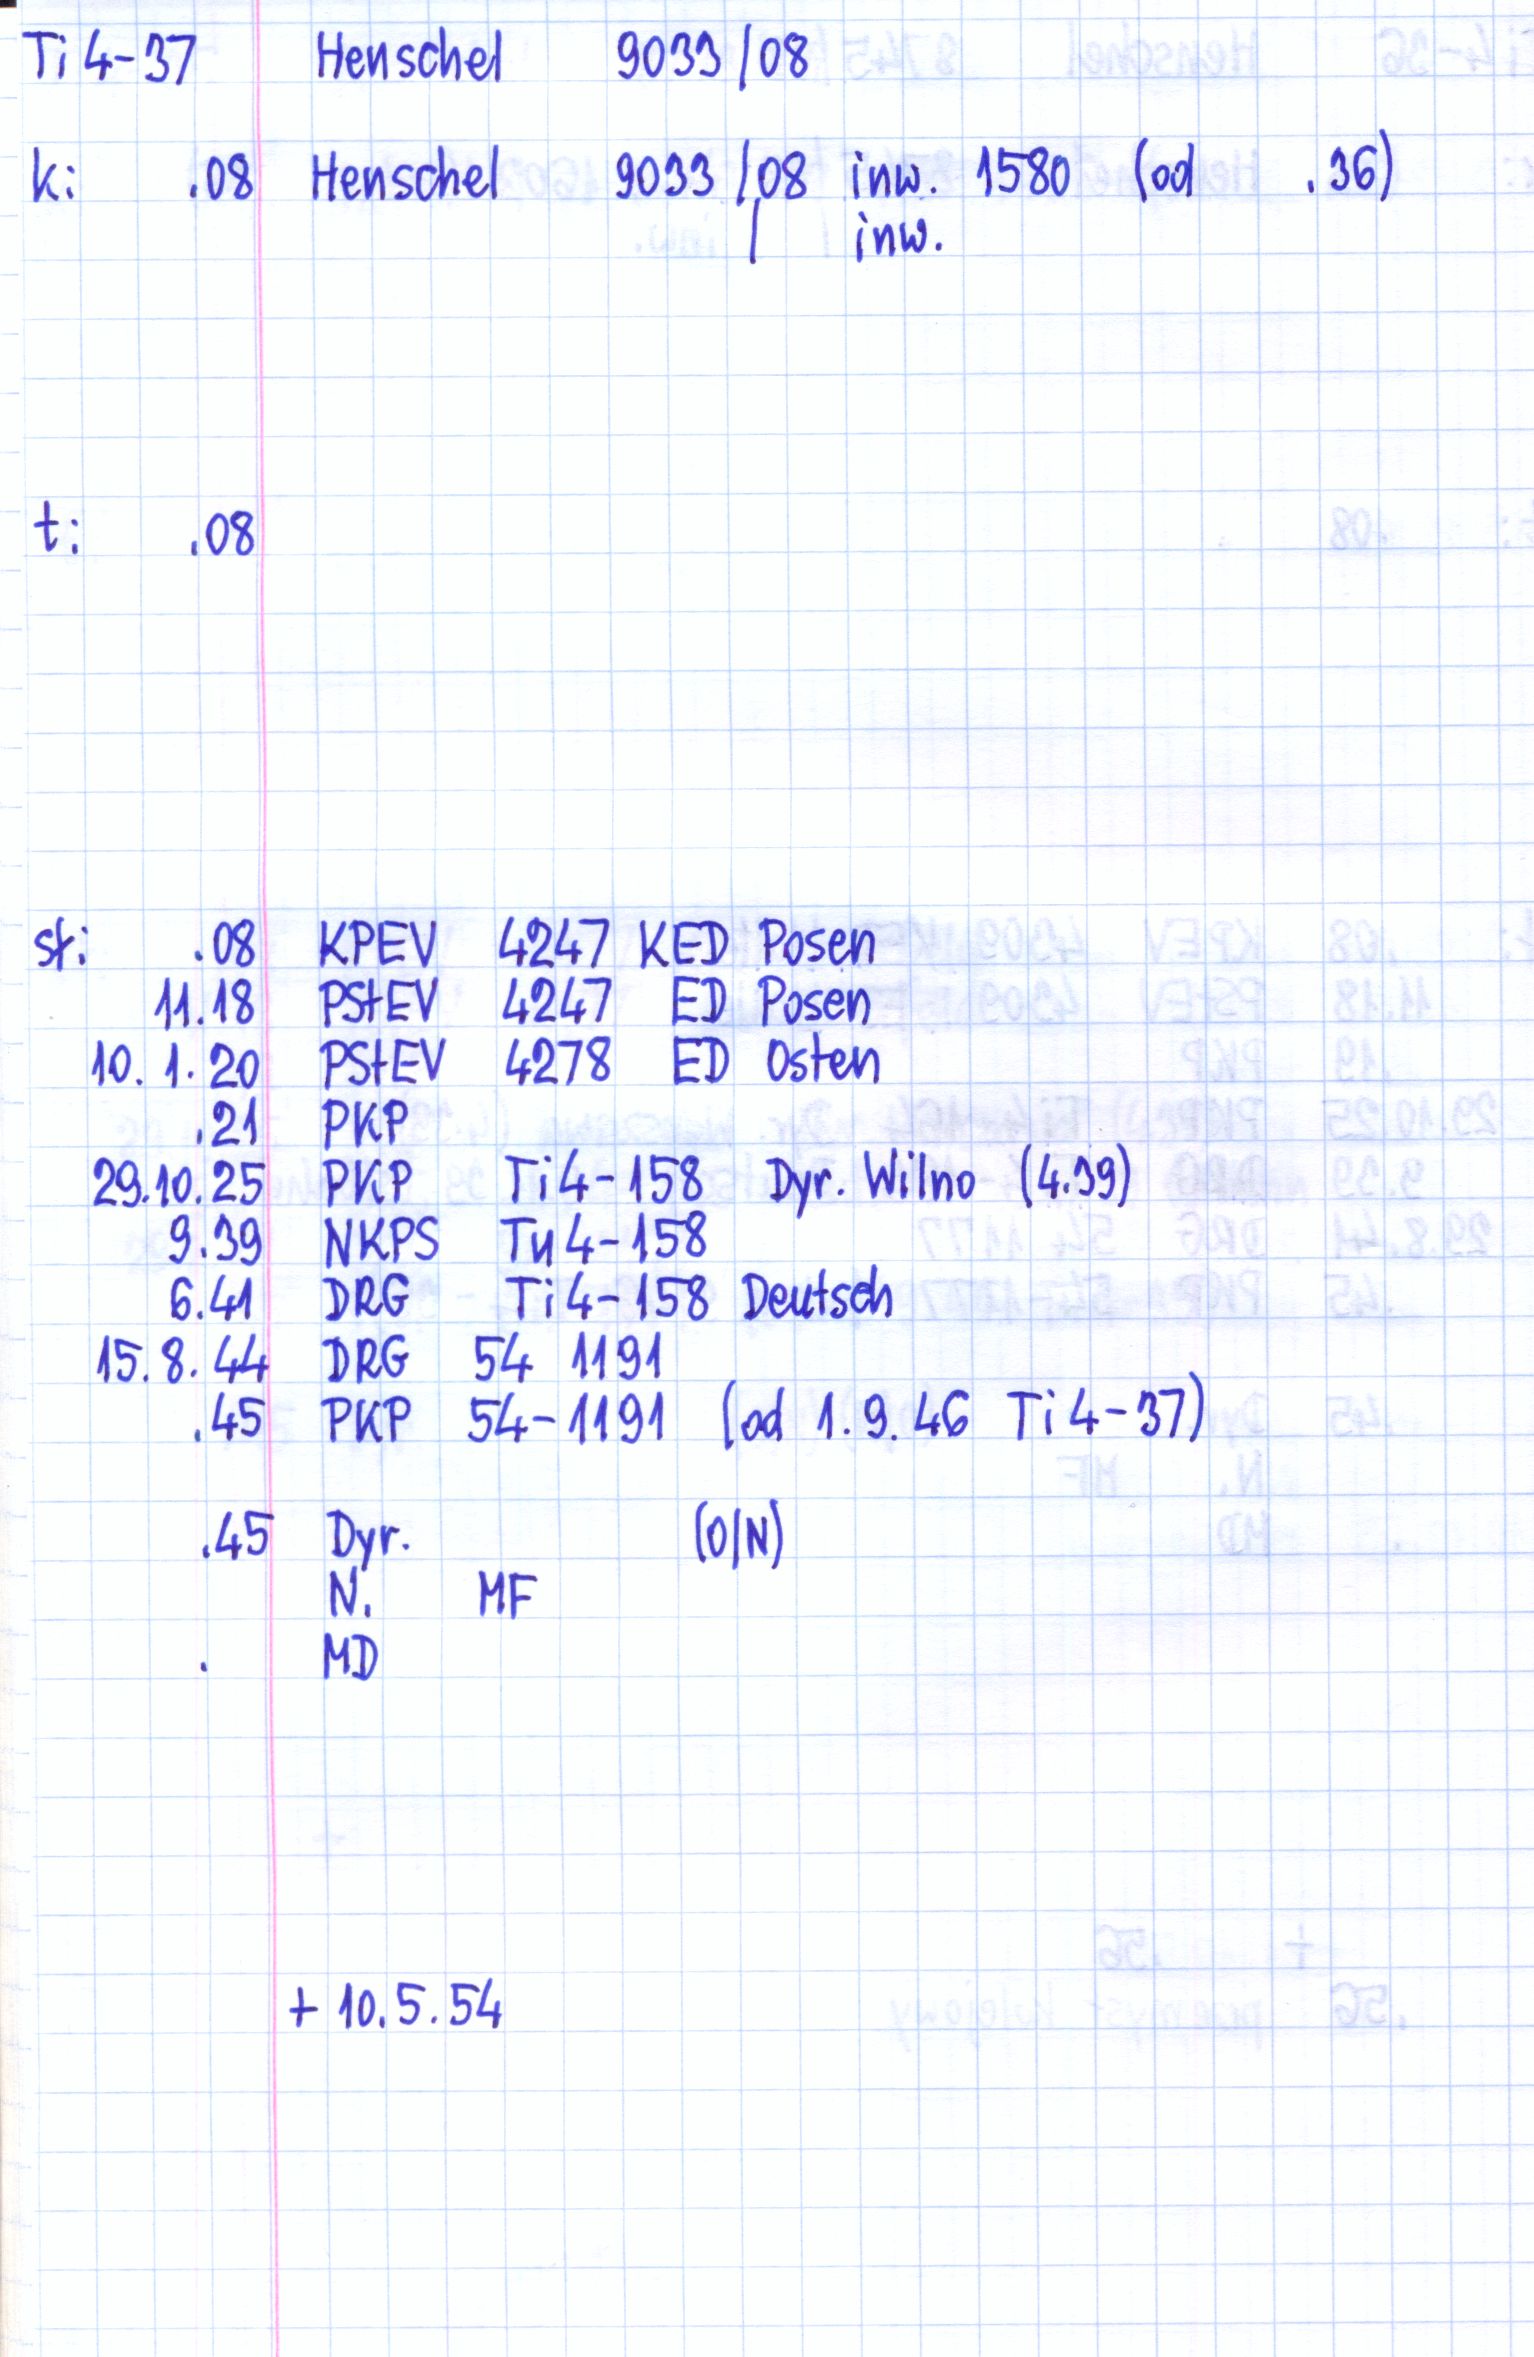 Ti 4-37 Henschel 9033/08
k: .08 Henschel 9033/08 inw. 1580 (od .36)
/ inw.
t: .08
st: .08 KPEV 4247 KED Posen
11.18 PStEV 4247 ED Posen
10. 1. 20 PStEV 4278 ED Osten
.21 PKP
29.10.25 PKP Ti4-158 Dyr. Wilno (4.39)
9.39 NKPS Ти4-158
6.41 DRG Ti4-158 Deutsch
15.8.44 DRG 54 1191
.45 PKP 54-1191 (od 1.9.46 Ti4-37)
.45 Dyr. (O/N)
N. MF
. MD
+ 10.5.54